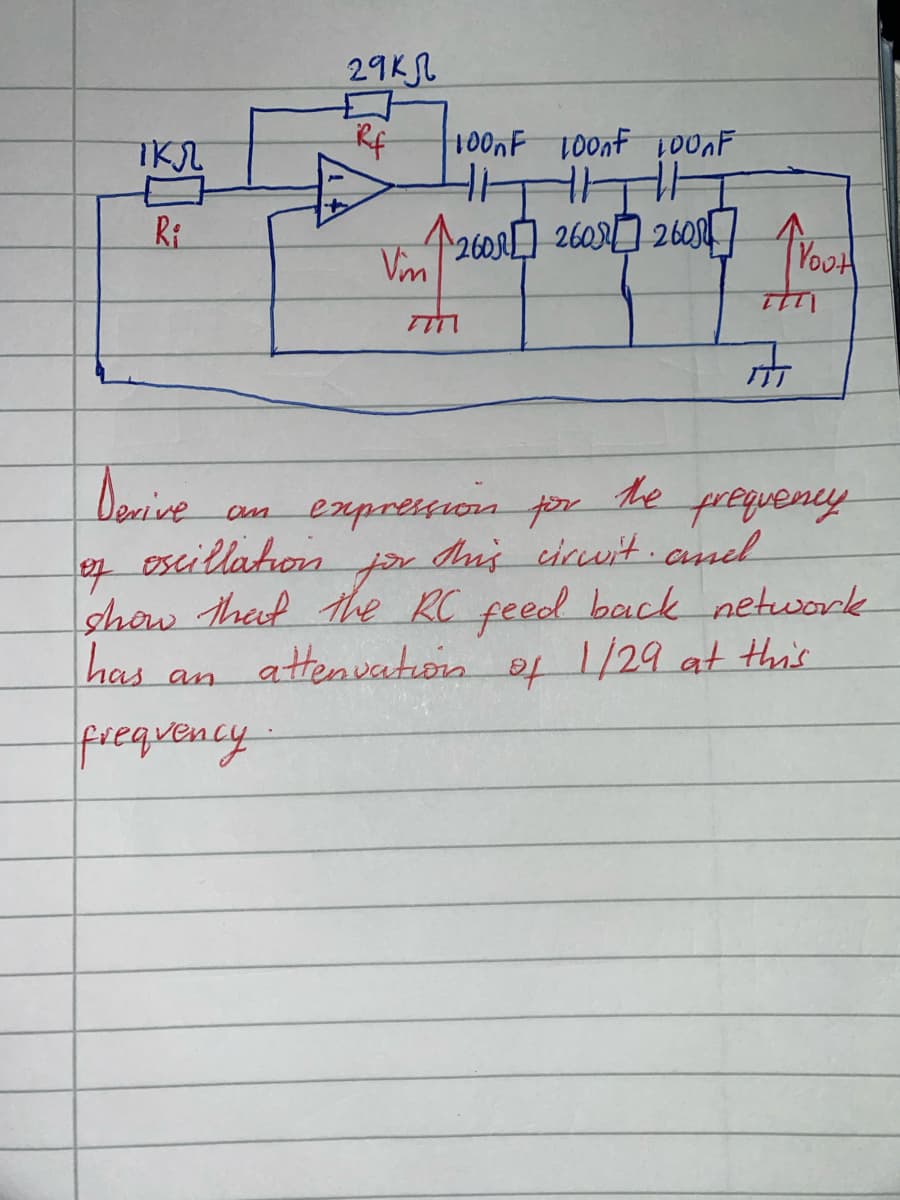 29KΩ
Rf
1KΩ
100nF 100nF 100nF
Ri
-
+
260Ω 260Ω 260Ω
Vin
Vout
Derive an expression for the frequency
of oscillation for this circuit. and
show that the RC feed back network
has an attenuation of 1/29 at this
frequency.